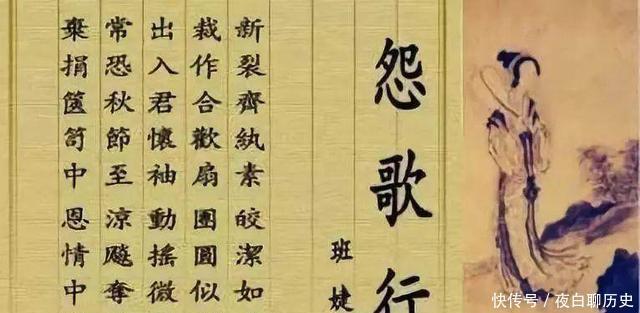 怨歌行
班婕
新裂齊紈素皎潔如
裁作合歡扇團圓似
出入君懷袖動搖微
常恐秋節至涼飈奪
棄捐篋笥中恩情中
快传号/夜白聊历史